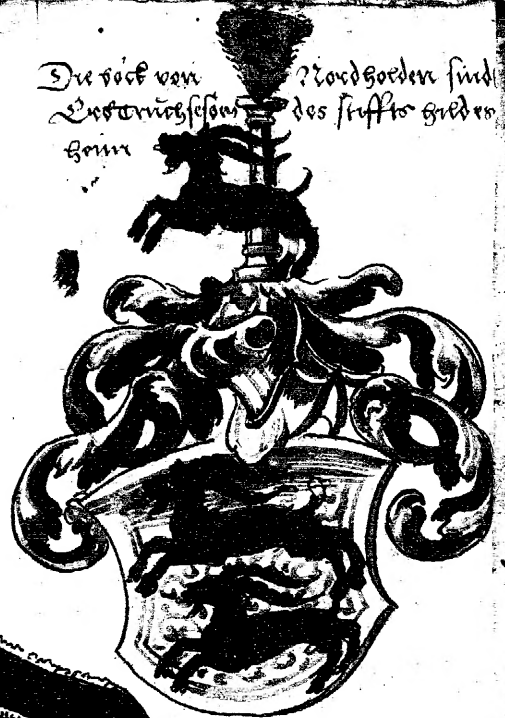 Die böck von Nordholden sind
Erbtruchsesen des stiffts hildes
heim